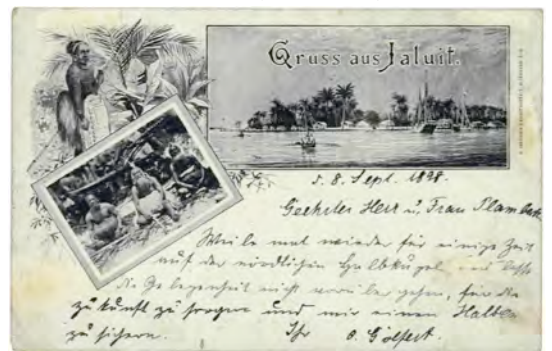 Gruss aus Jaluit.
d. 8. Sept. 1898.
Geehrter Herr u. Frau Plambeck
Weile mal wieder für einige Zeit
auf der nördlichen Halbkugel und lasse
die Gelegenheit nicht vorüber gehen, für die
zukunft zu sorgen und mir einen Halben
zu sichern. Ihr